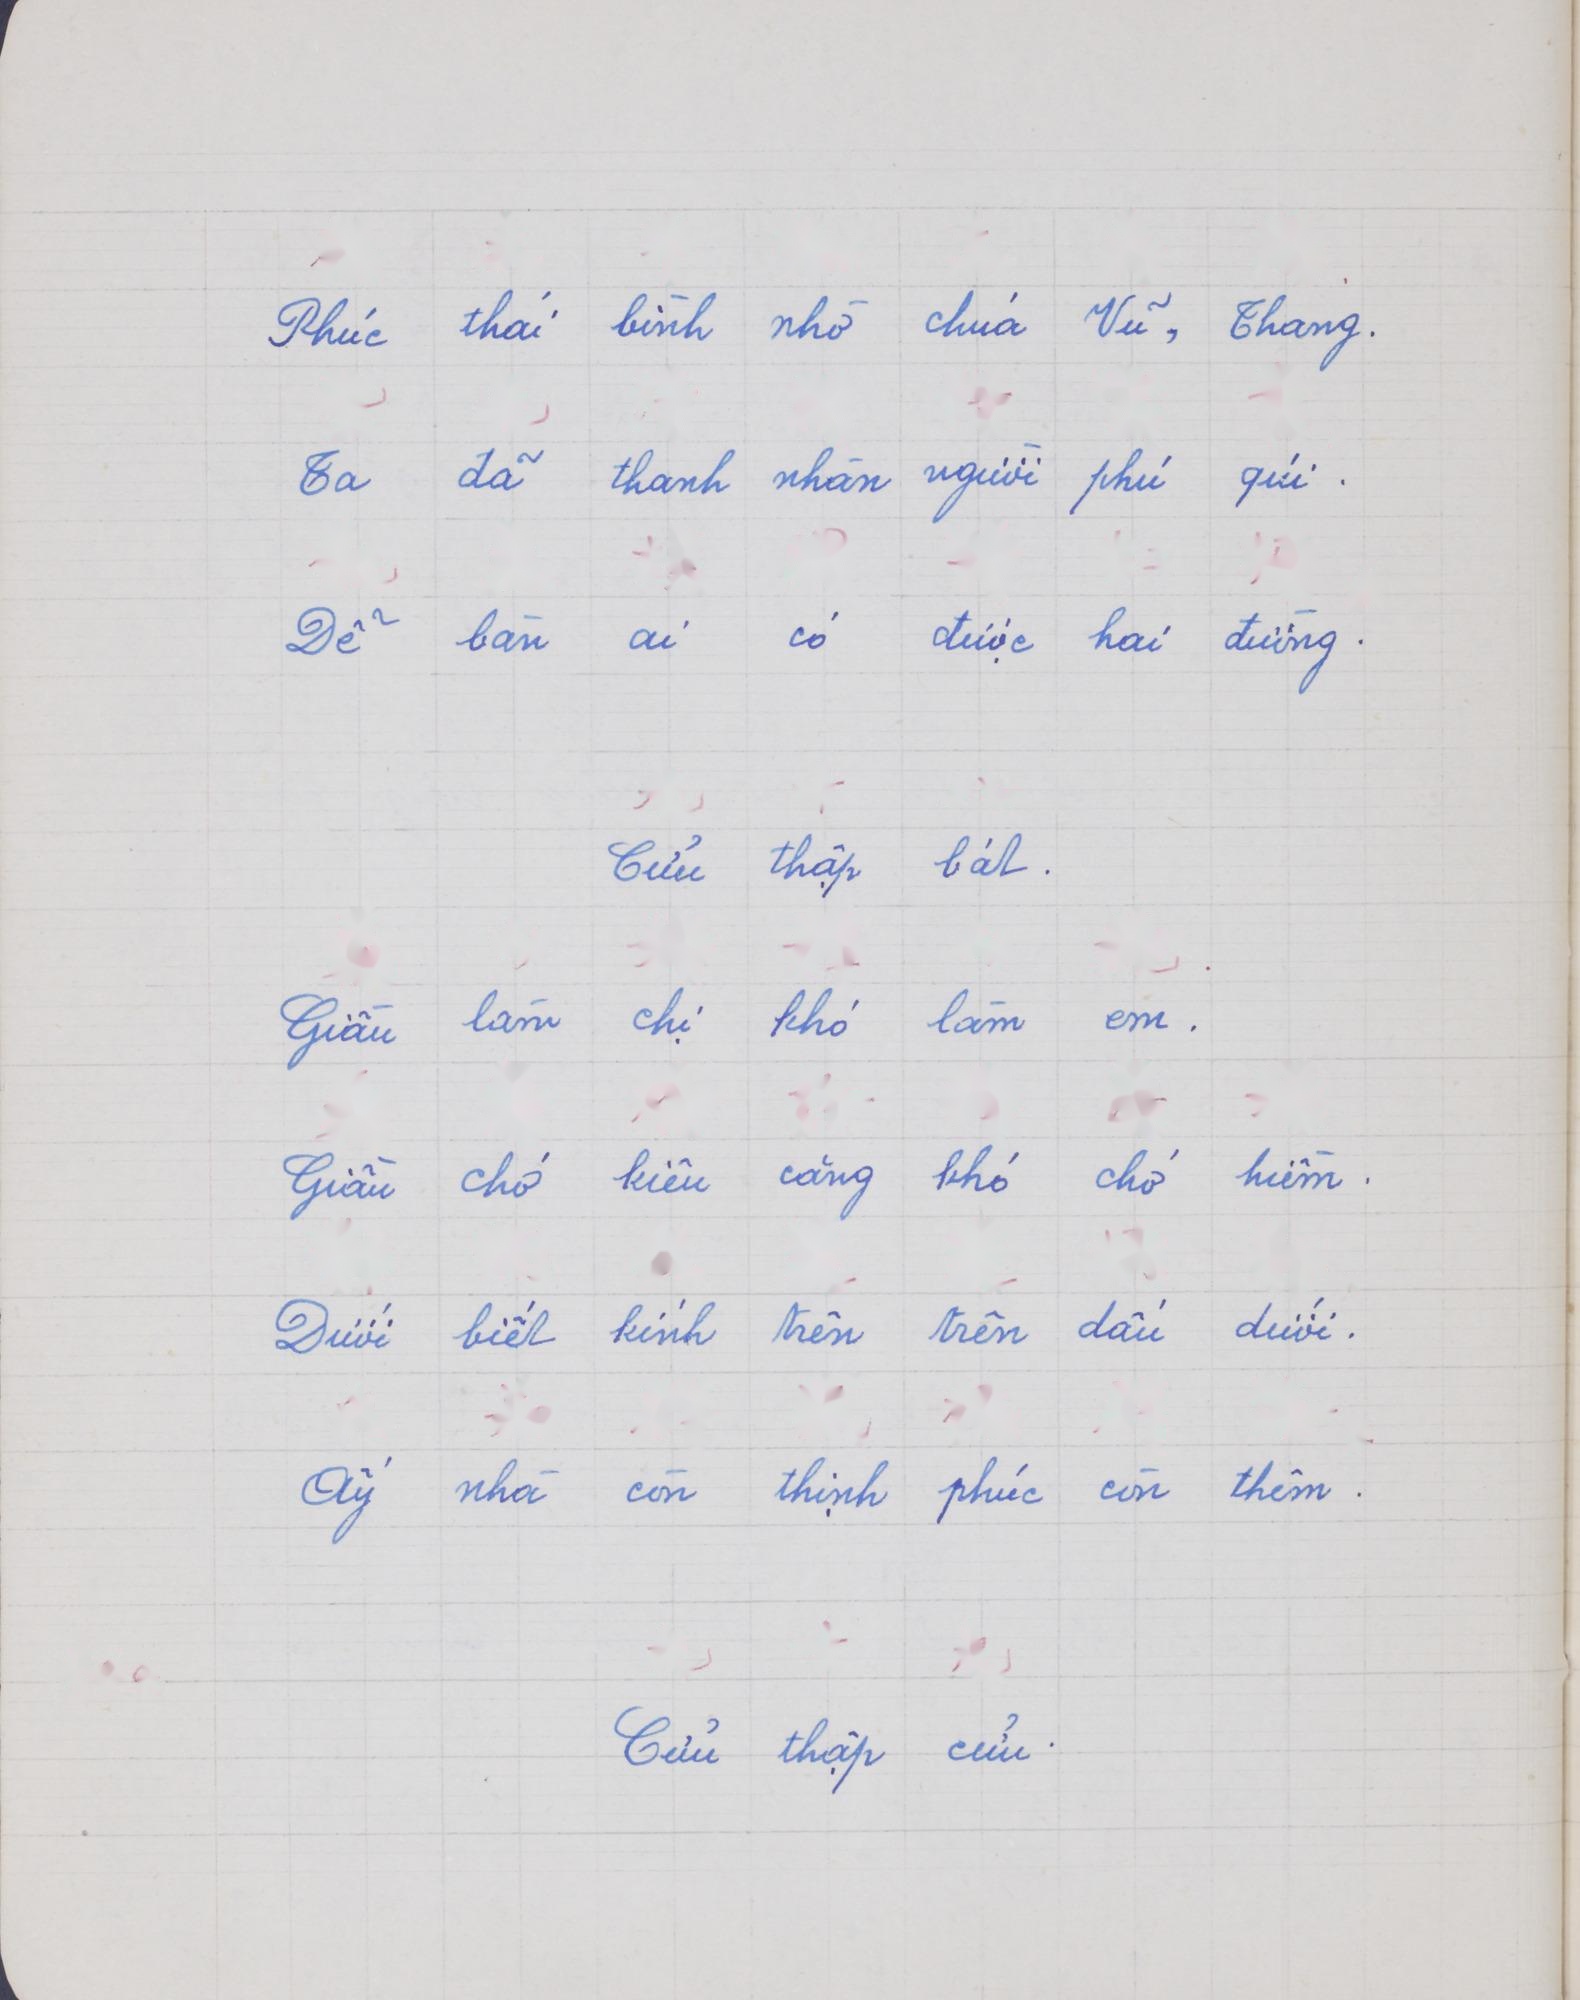 Phúc thái bình nhờ chúa Vũ, Thang.
Ta đã thanh nhàn người phú qúi.
Dễ bàn ai có được hai đường.
Cửu thập bát.
Giầu làm chị khó làm em.
Giầu chớ kiêu căng khó chớ hiềm.
Dưới biết kính trên trên dấu dưới.
Ấy nhà còn thịnh phúc còn thêm.
Cửu thập cửu.